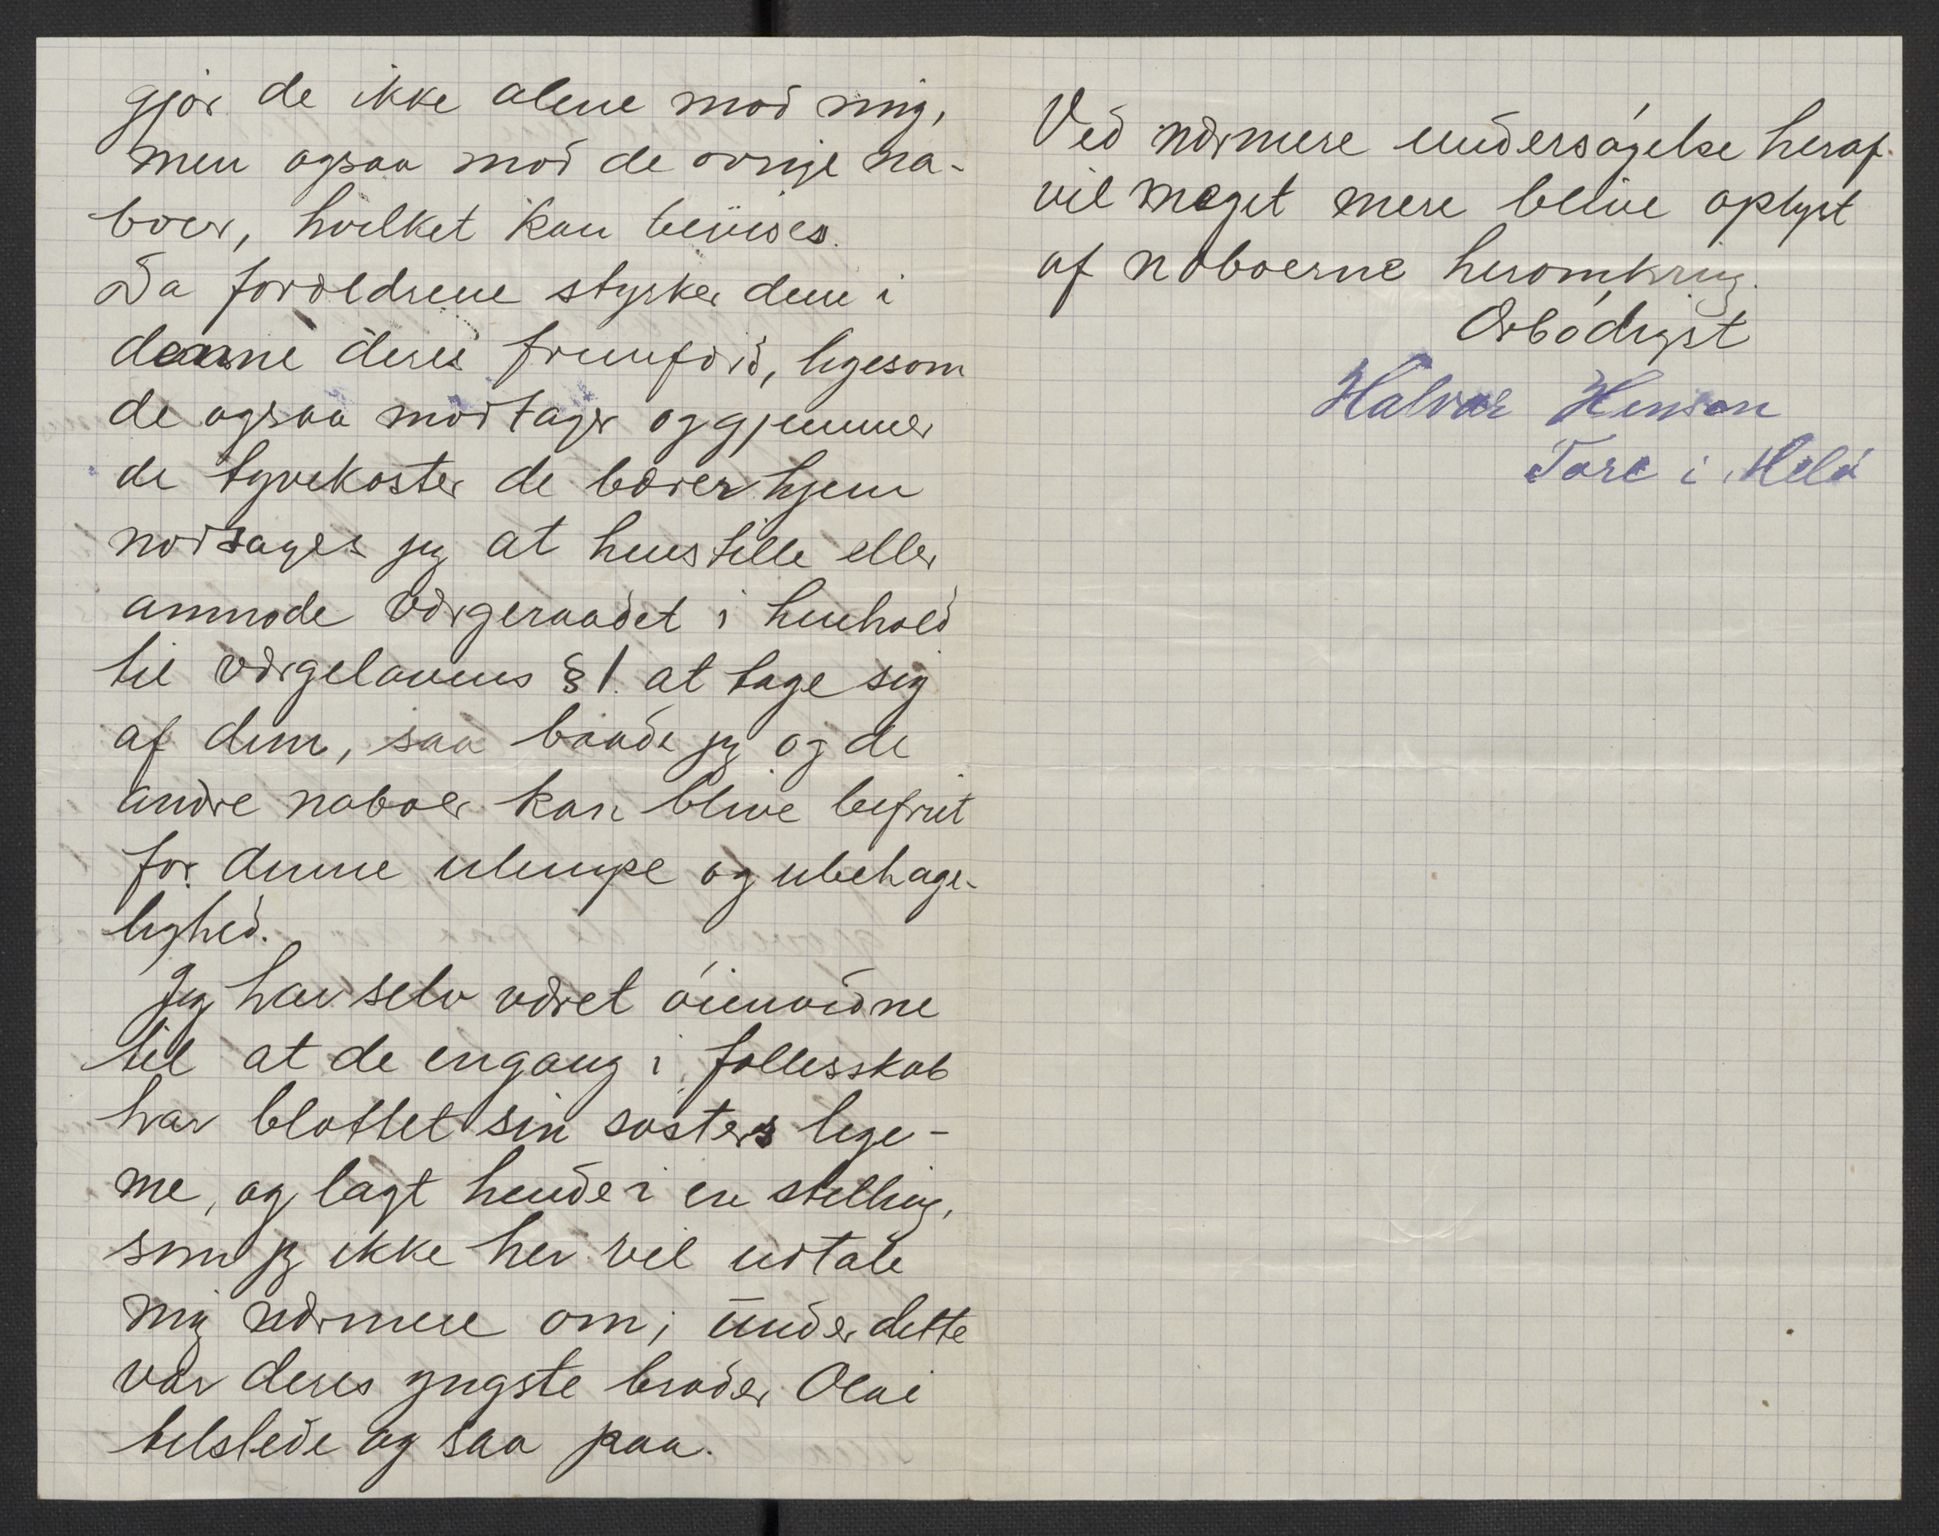 gjør de ikke alene mod mig,
men ogsaa mod de øvrige na-
boer, hvilket kan bevises.
Da forældrene styrker dem i
denne deres fremfærd, ligesom
de ogsaa modtager og gjemmer
de tyvekoster de bærer hjem
nødsages jeg at henstille eller
anmode værgeraadet i henhold
til værgelovens § 1. at tage sig
af dem, saa baade jeg og de
andre naboer kan blive befriet
for denne ulempe og ubehage-
lighed.
Jeg har selv været øienvidne
til at de engang i fællesskab
har blottet sin søsters lege-
me, og lagt hende i en stelling,
som jeg ikke her vil udtale
mig nærmere om; under dette
var deres yngste broder Olai
tilstede og saa paa.
Ved nærmere undersøgelse heraf
vil meget mere blive oplyst
af naboerne heromkring.
Ærbødigst
Halvor Hanson
Tore i Melø